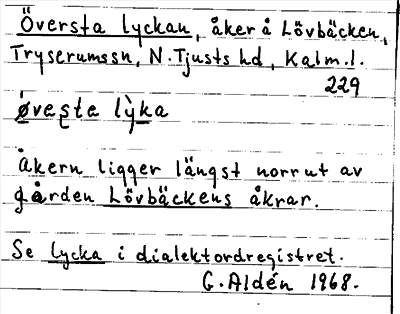 Översta lyckan, åker å Lövbäcken,
Tryserumssn, N. Tjusts hd, Kalm. l.
229
ø̀vesta lỳka
Åkern ligger längst norrut av
gården Lövbäckens åkrar.
Se lycka i dialektordregistret.
G. Aldén 1968.